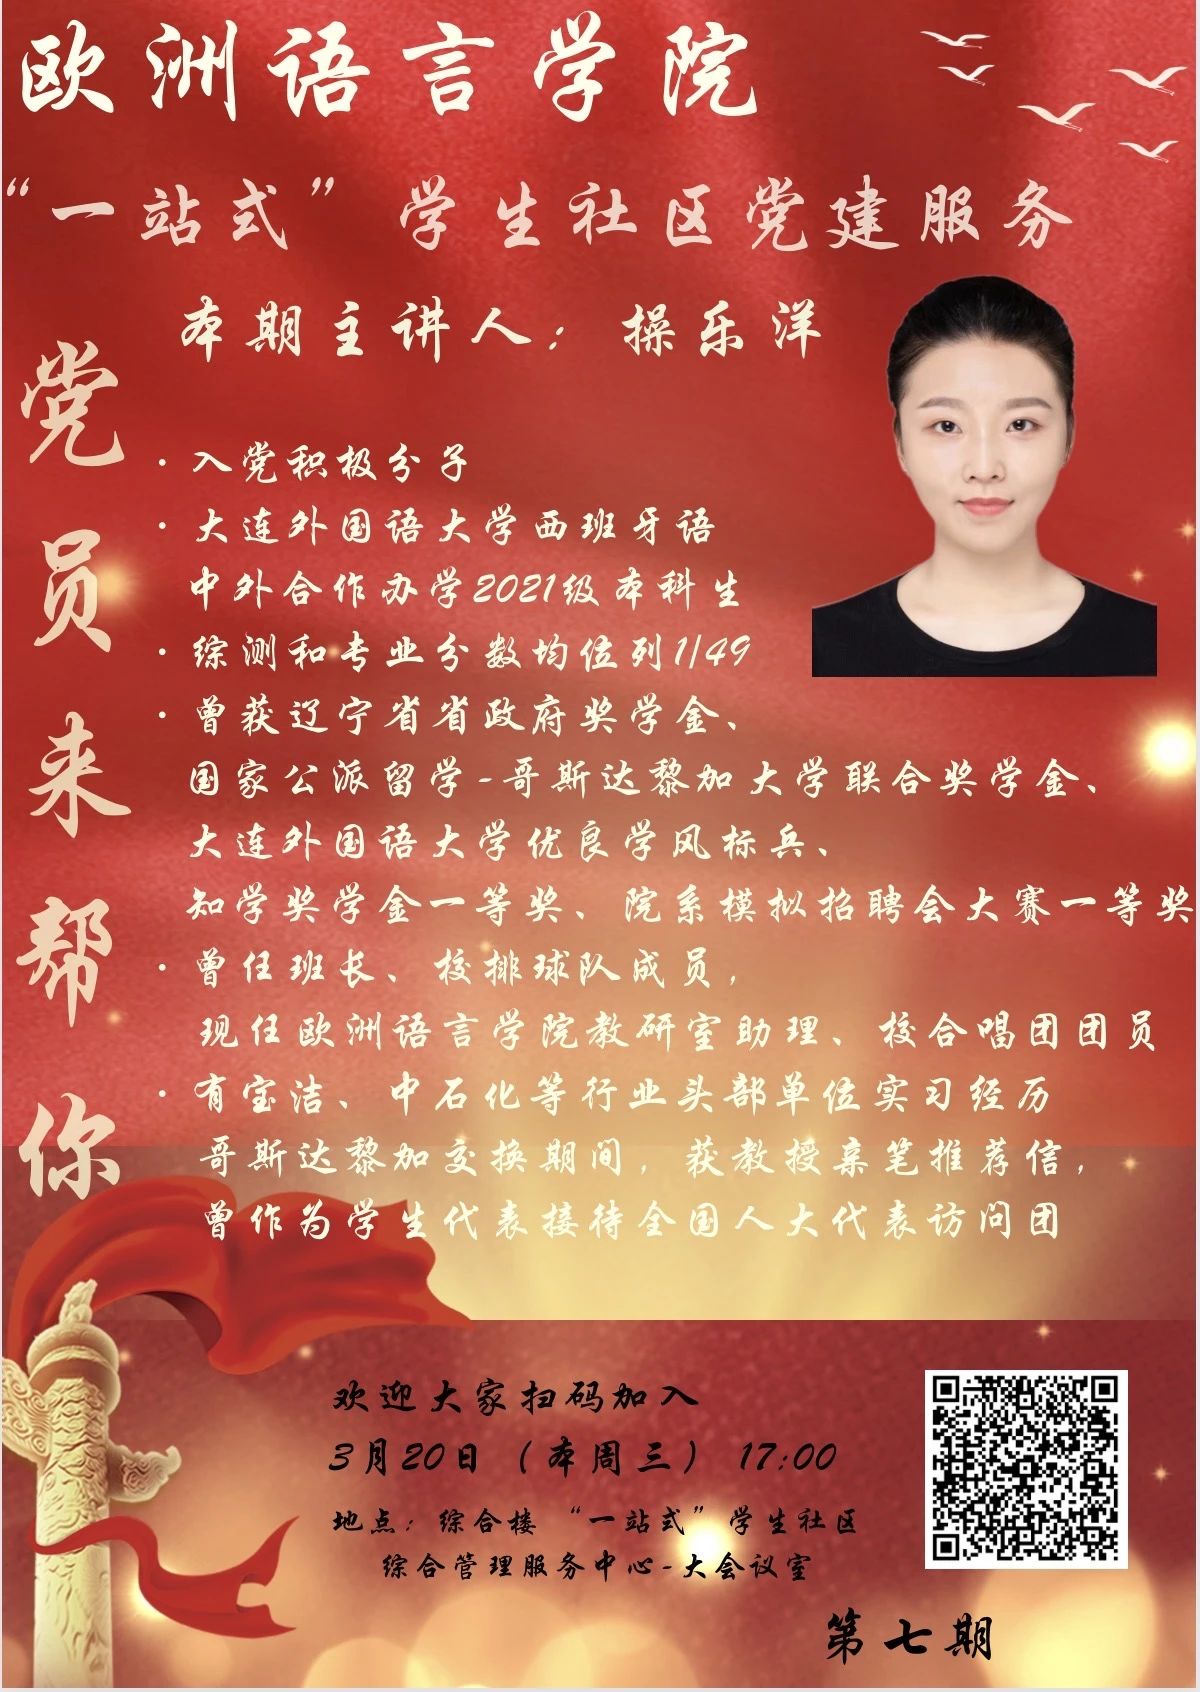 欧洲语言学院
“一站式”学生社区党建服务
本期主讲人：操乐洋
党员来帮你
·入党积极分子
·大连外国语大学西班牙语
中外合作办学2021级本科生
·综测和专业分数均位列1/49
·曾获辽宁省省政府奖学金、
国家公派留学-哥斯达黎加大学联合奖学金、
大连外国语大学优良学风标兵、
知学奖学金一等奖、院系模拟招聘会大赛一等奖
·曾任班长、校排球队成员，
现任欧洲语言学院教研室助理、校合唱团团员
·有宝洁、中石化等行业头部单位实习经历
哥斯达黎加交换期间，获教授亲笔推荐信，
曾作为学生代表接待全国人大代表访问团
欢迎大家扫码加入
3月20日（本周三）17:00
地点：综合楼“一站式”学生社区
综合管理服务中心-大会议室
第七期